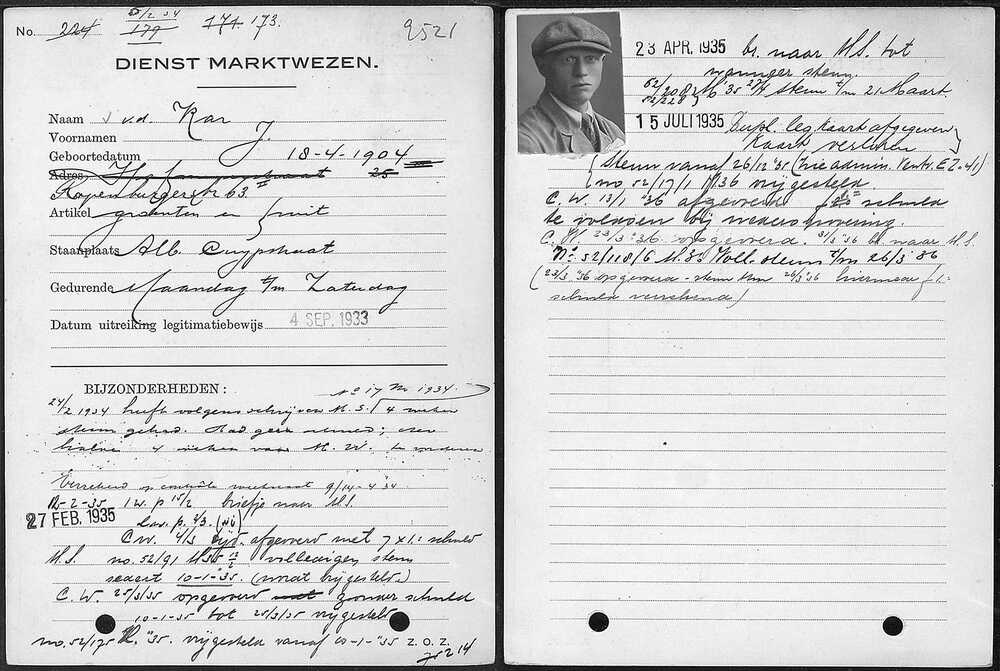 5/2 34
No. 224 179 171 173.
9521
DIENST MARKTWEZEN.
Naam v.d. Kar
Voornamen J.
Geboortedatum 18-4-1904
Adres 25
Rapenburgerstr 63 II
Artikel groenten en fruit
Staanplaats Alb. Cuypstraat
Gedurende Maandag t/m Zaterdag
Datum uitreiking legitimatiebewijs 4 SEP. 1933
BIJZONDERHEDEN:
No 17 M 1934.
24/2 1934 heeft volgens schrijven M.S. 4 weken
steun gehad. Had geen schuld;
4 weken van M.W. te
controle 9/14-4 '34
12-2-35 1 w. p 15/2 briefje naar M.S.
27 FEB. 1935 p. 2/3.
C.W. 4/3 afgevoerd met 7 x 1.= schuld
M.S. no. 52/91 M 35 volledigen steun
sedert 10-1-'35. (wordt bijgesteld.)
C.W. 25/3/35 opgevoerd zonder schuld
10-1-35 tot 25/3/35 vrijgesteld
no. 52/175 M. "35. vrijgesteld vanaf 10-1-"35 Z.O.Z.
23 APR. 1935 br. naar M.S. tot
wanneer steun.
52/208 M '35 steun t/m 21 Maart.
52/228
15 JULI 1935 Dupl. leg. kaart afgegeven
Kaart verloren
(Steun vanaf 26/12 '35 (zie admin. Centr. E.Z. 4/1)
(no 52/17/1 M 36 vrijgesteld.
C.W. 13/1 '36 afgevoerd schuld
te voldoen bij
C.W. 23/3 '36 opgevoerd. 31/3 '36 br. naar M.S.
No. 52/118/6 M.36 Voll. steun t/m 26/3 36
(23/3 '36 opgevoerd - steun t/m 26/3 '36 hiermede f 1.-
schuld verrekend)